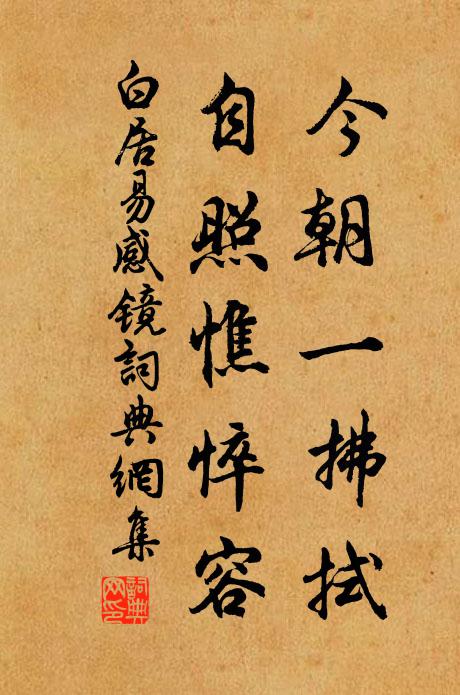 今朝一拂拭
自照憔悴容
白居易感鏡詞典網集
詞典网印